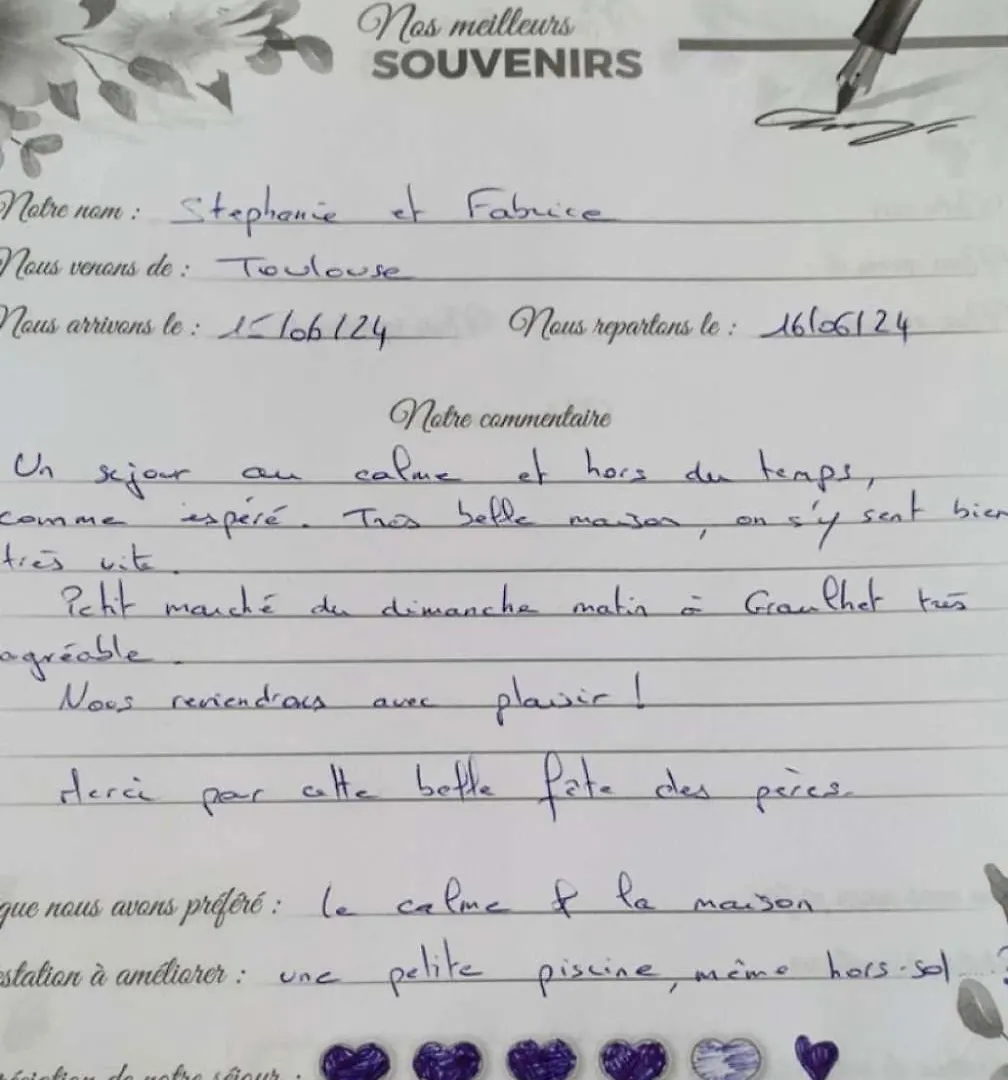 Nos meilleurs
SOUVENIRS
Notre nom : Stephanie et Fabrice
Nous venons de : Toulouse
Nous arrivons le : 15/06/24 Nous repartons le : 16/06/24
Notre commentaire
Un sejour au calme et hors du temps,
comme espéré. Très belle maison, on s'y sent bien
très vite.
Petit marché du dimanche matin à Graulhet très
agréable.
Nous reviendrons avec plaisir !
Merci pour cette belle fête des pères.
que nous avons préféré : le calme & la maison
estation à améliorer : une petite piscine, même hors-sol ?
éciation de notre séjour :